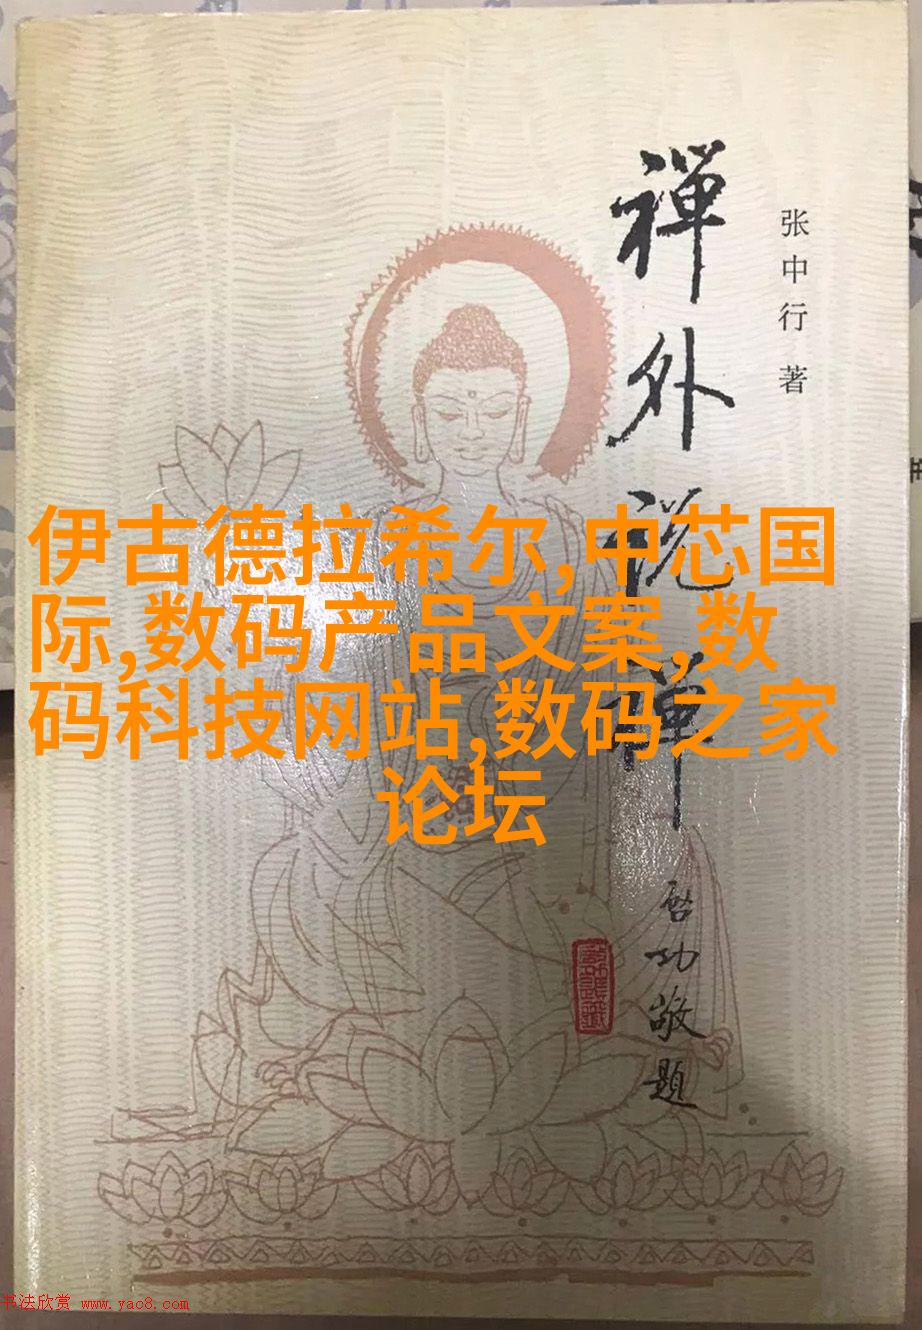 禅外说禅
张中行 著
伊古德拉希尔,中芯国
际,数码产品文案,数
码科技网站,数码之家
论坛
启功敬题
书法欣赏 www.yac8.com